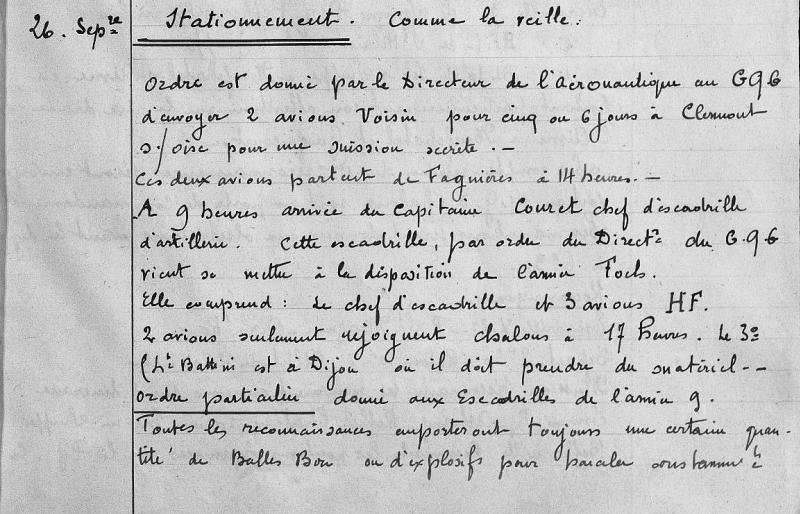 26. Sepre
Stationnement. Comme la veille.
Ordre est donné par le Directeur de l'aéronautique au GQG
d'envoyer 2 avions Voisin pour cinq ou 6 jours à Clermont
s/oise pour une mission secrète. —
Ces deux avions partent de Fagnières à 14 heures. —
A 9 heures arrivée du Capitaine Couret chef d'escadrille
d'artillerie. Cette escadrille, par ordre du Directr du G.Q.G
vient se mettre à la disposition de l'armée Foch.
Elle comprend : Le chef d'escadrille et 3 avions HF.
2 avions seulement rejoignent chalons à 17 heures. Le 3e
(Lt Battini est à Dijon où il doit prendre du matériel --
Ordre particulier donné aux Escadrilles de l'armée 9.
Toutes les reconnaissances emporteront toujours une certaine quan-
tité de Balles Bon ou d'explosifs pour